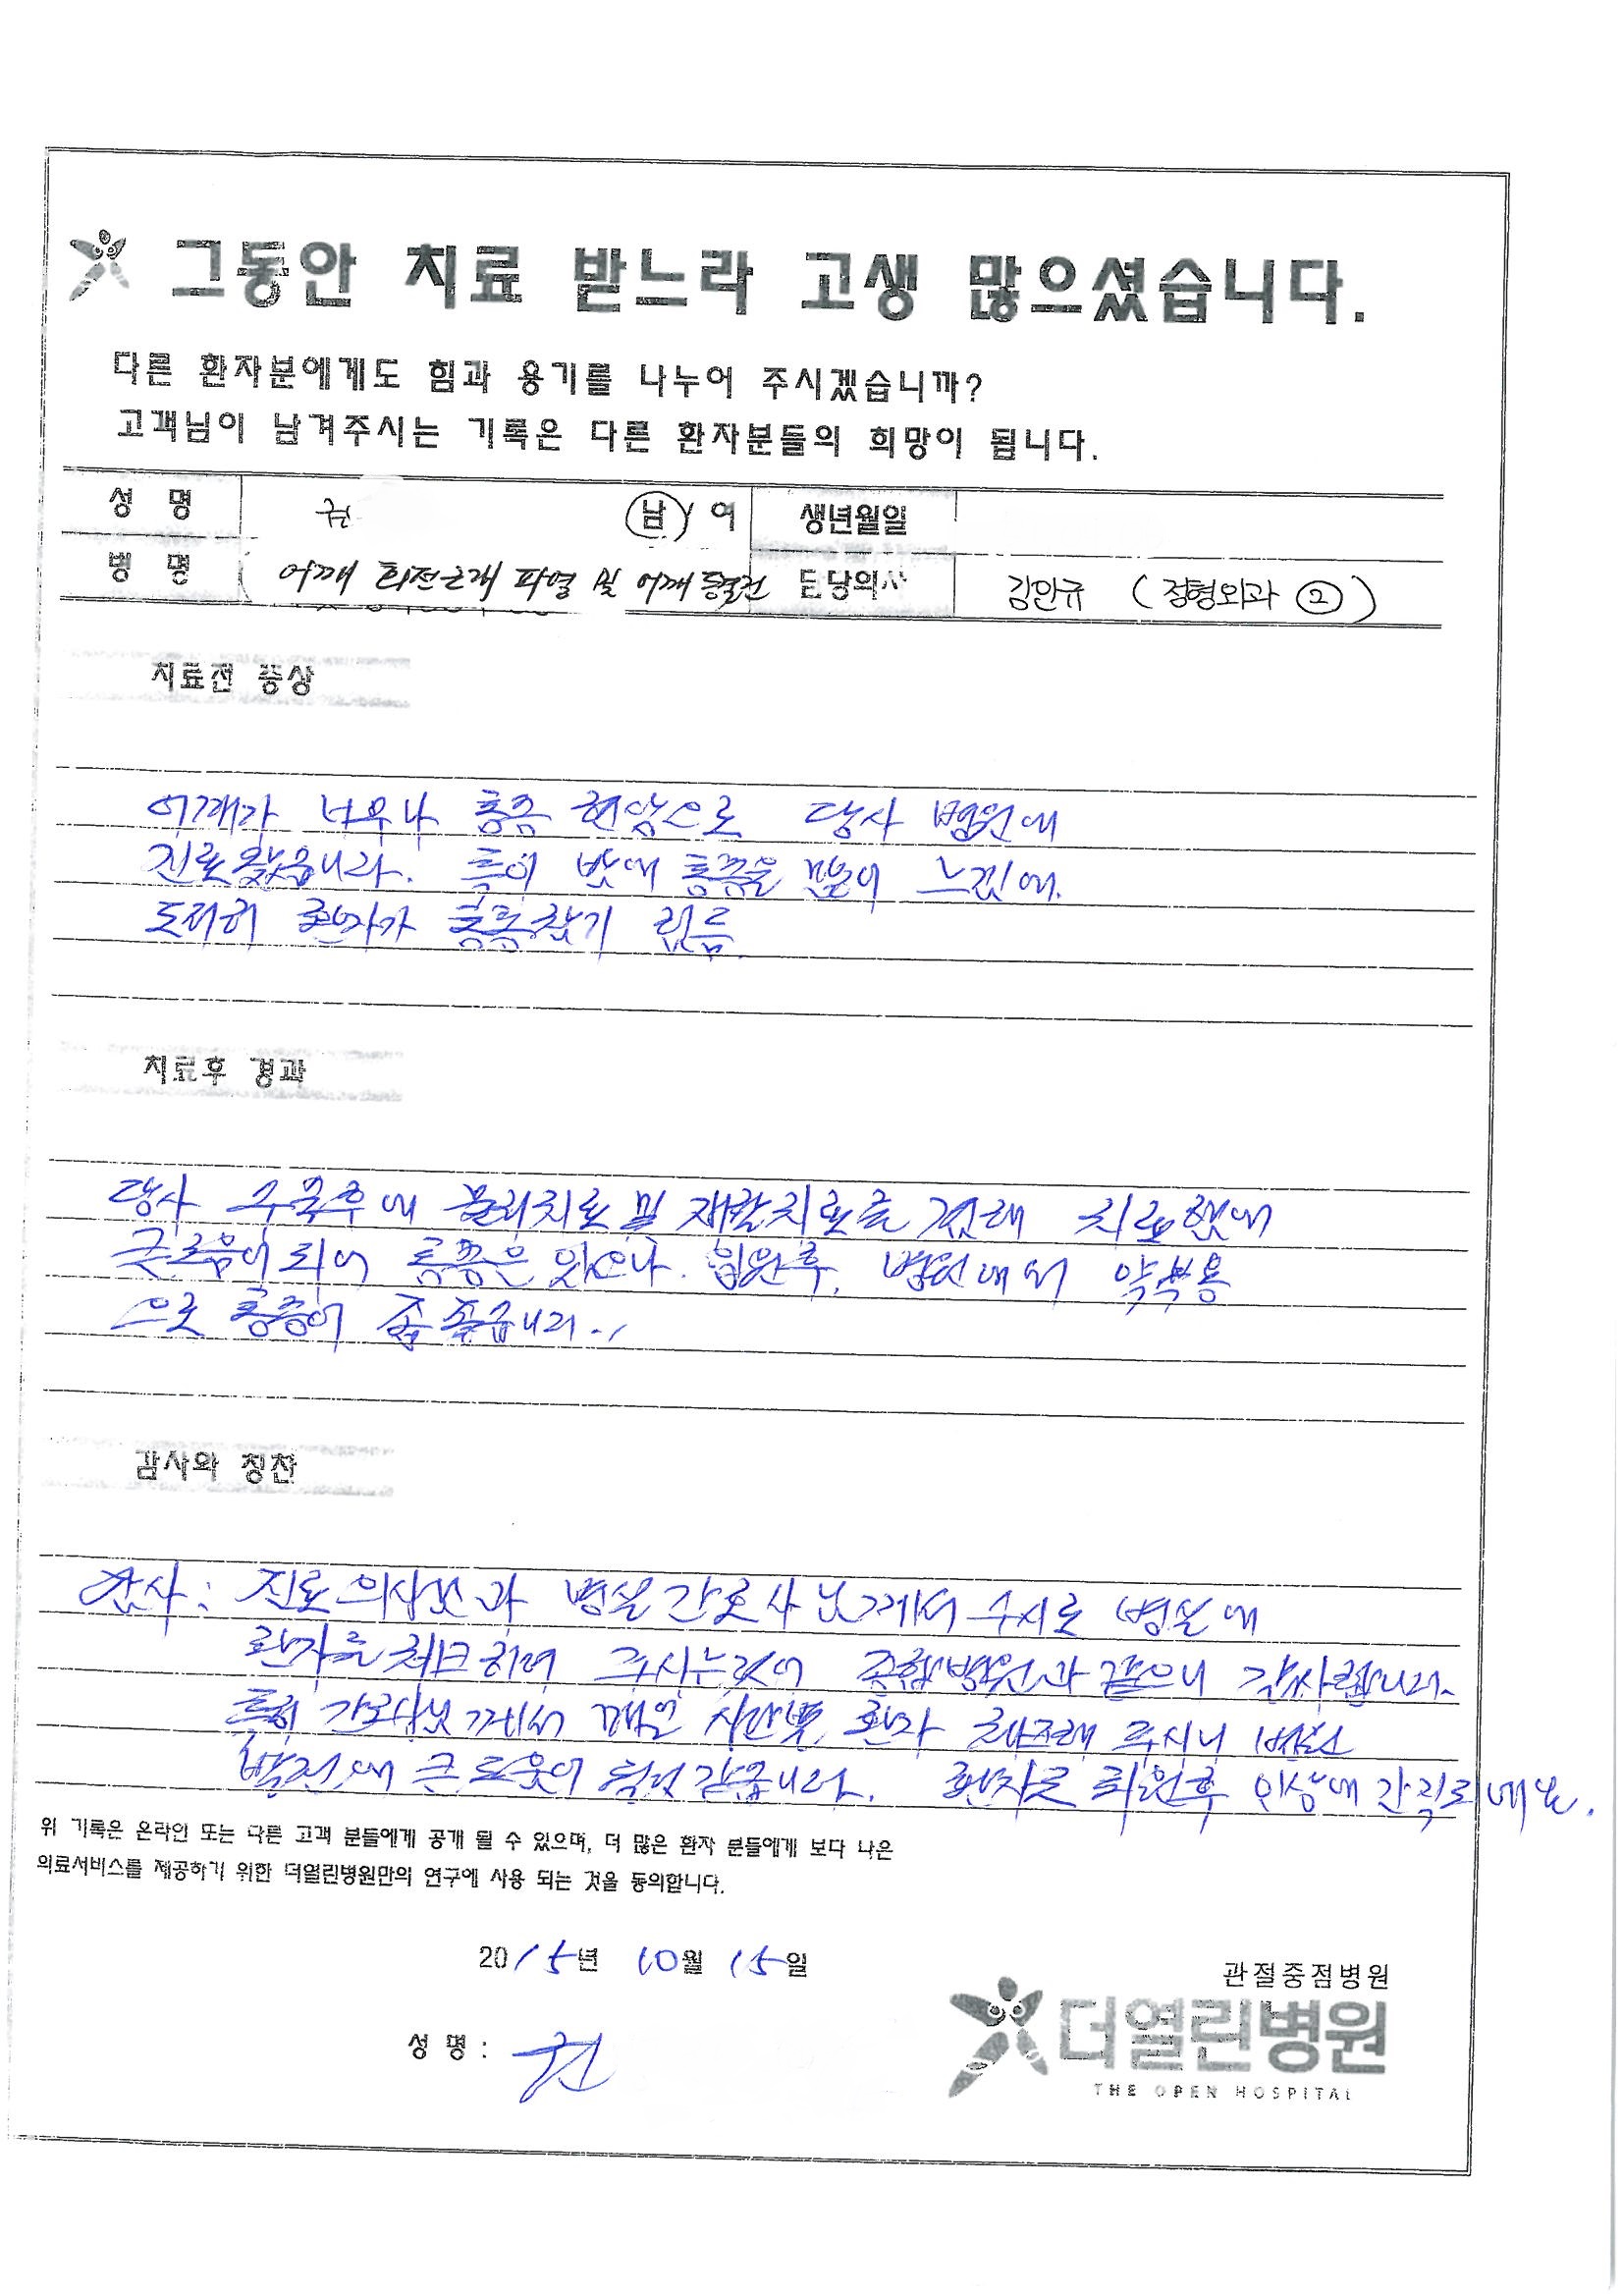 그동안 치료 받느라 고생 많으셨습니다.
다른 환자분에게도 힘과 용기를 나누어 주시겠습니까?
고객님이 남겨주시는 기록은 다른 환자분들의 희망이 됩니다.
성 명 권 남 / 여 생년월일
병 명 어깨 회전근개 파열 및 어깨 충돌 담당의사 김안규 (정형외과 ②)
치료전 증상
어깨가 너무나 통증 현상으로 당사 병원에
진료 찾습니다. 특이 밤에 통증을 많이 느낌에.
도저히 환자가 통증참기
치료후 경과
당사 수술후에 물리치료 및 재활치료를 치료했에
큰도움이 되어 통증은 있으나. 입원후, 병원에서 약복용
으로 통증이
감사와 칭찬
감사: 진료의사분과 병실 간호사님께서 수시로 병실에
환자를 체크하여 종합병원과 같으니 감사합니다.
특히 간호사님께서 매일 시간별, 환자 체크해 주시니 병원
발전에 큰 도움이 될것 같습니다. 환자로 퇴원후 인상에 간직
위 기록은 온라인 또는 다른 고객 분들에게 공개 될 수 있으며, 더 많은 환자 분들에게 보다 나은
의료서비스를 제공하기 위한 더열린병원만의 연구에 사용 되는 것을 동의합니다.
2015년 10월 15일
성 명 : 권
관절중점병원
더열린병원
THE OPEN HOSPITAL